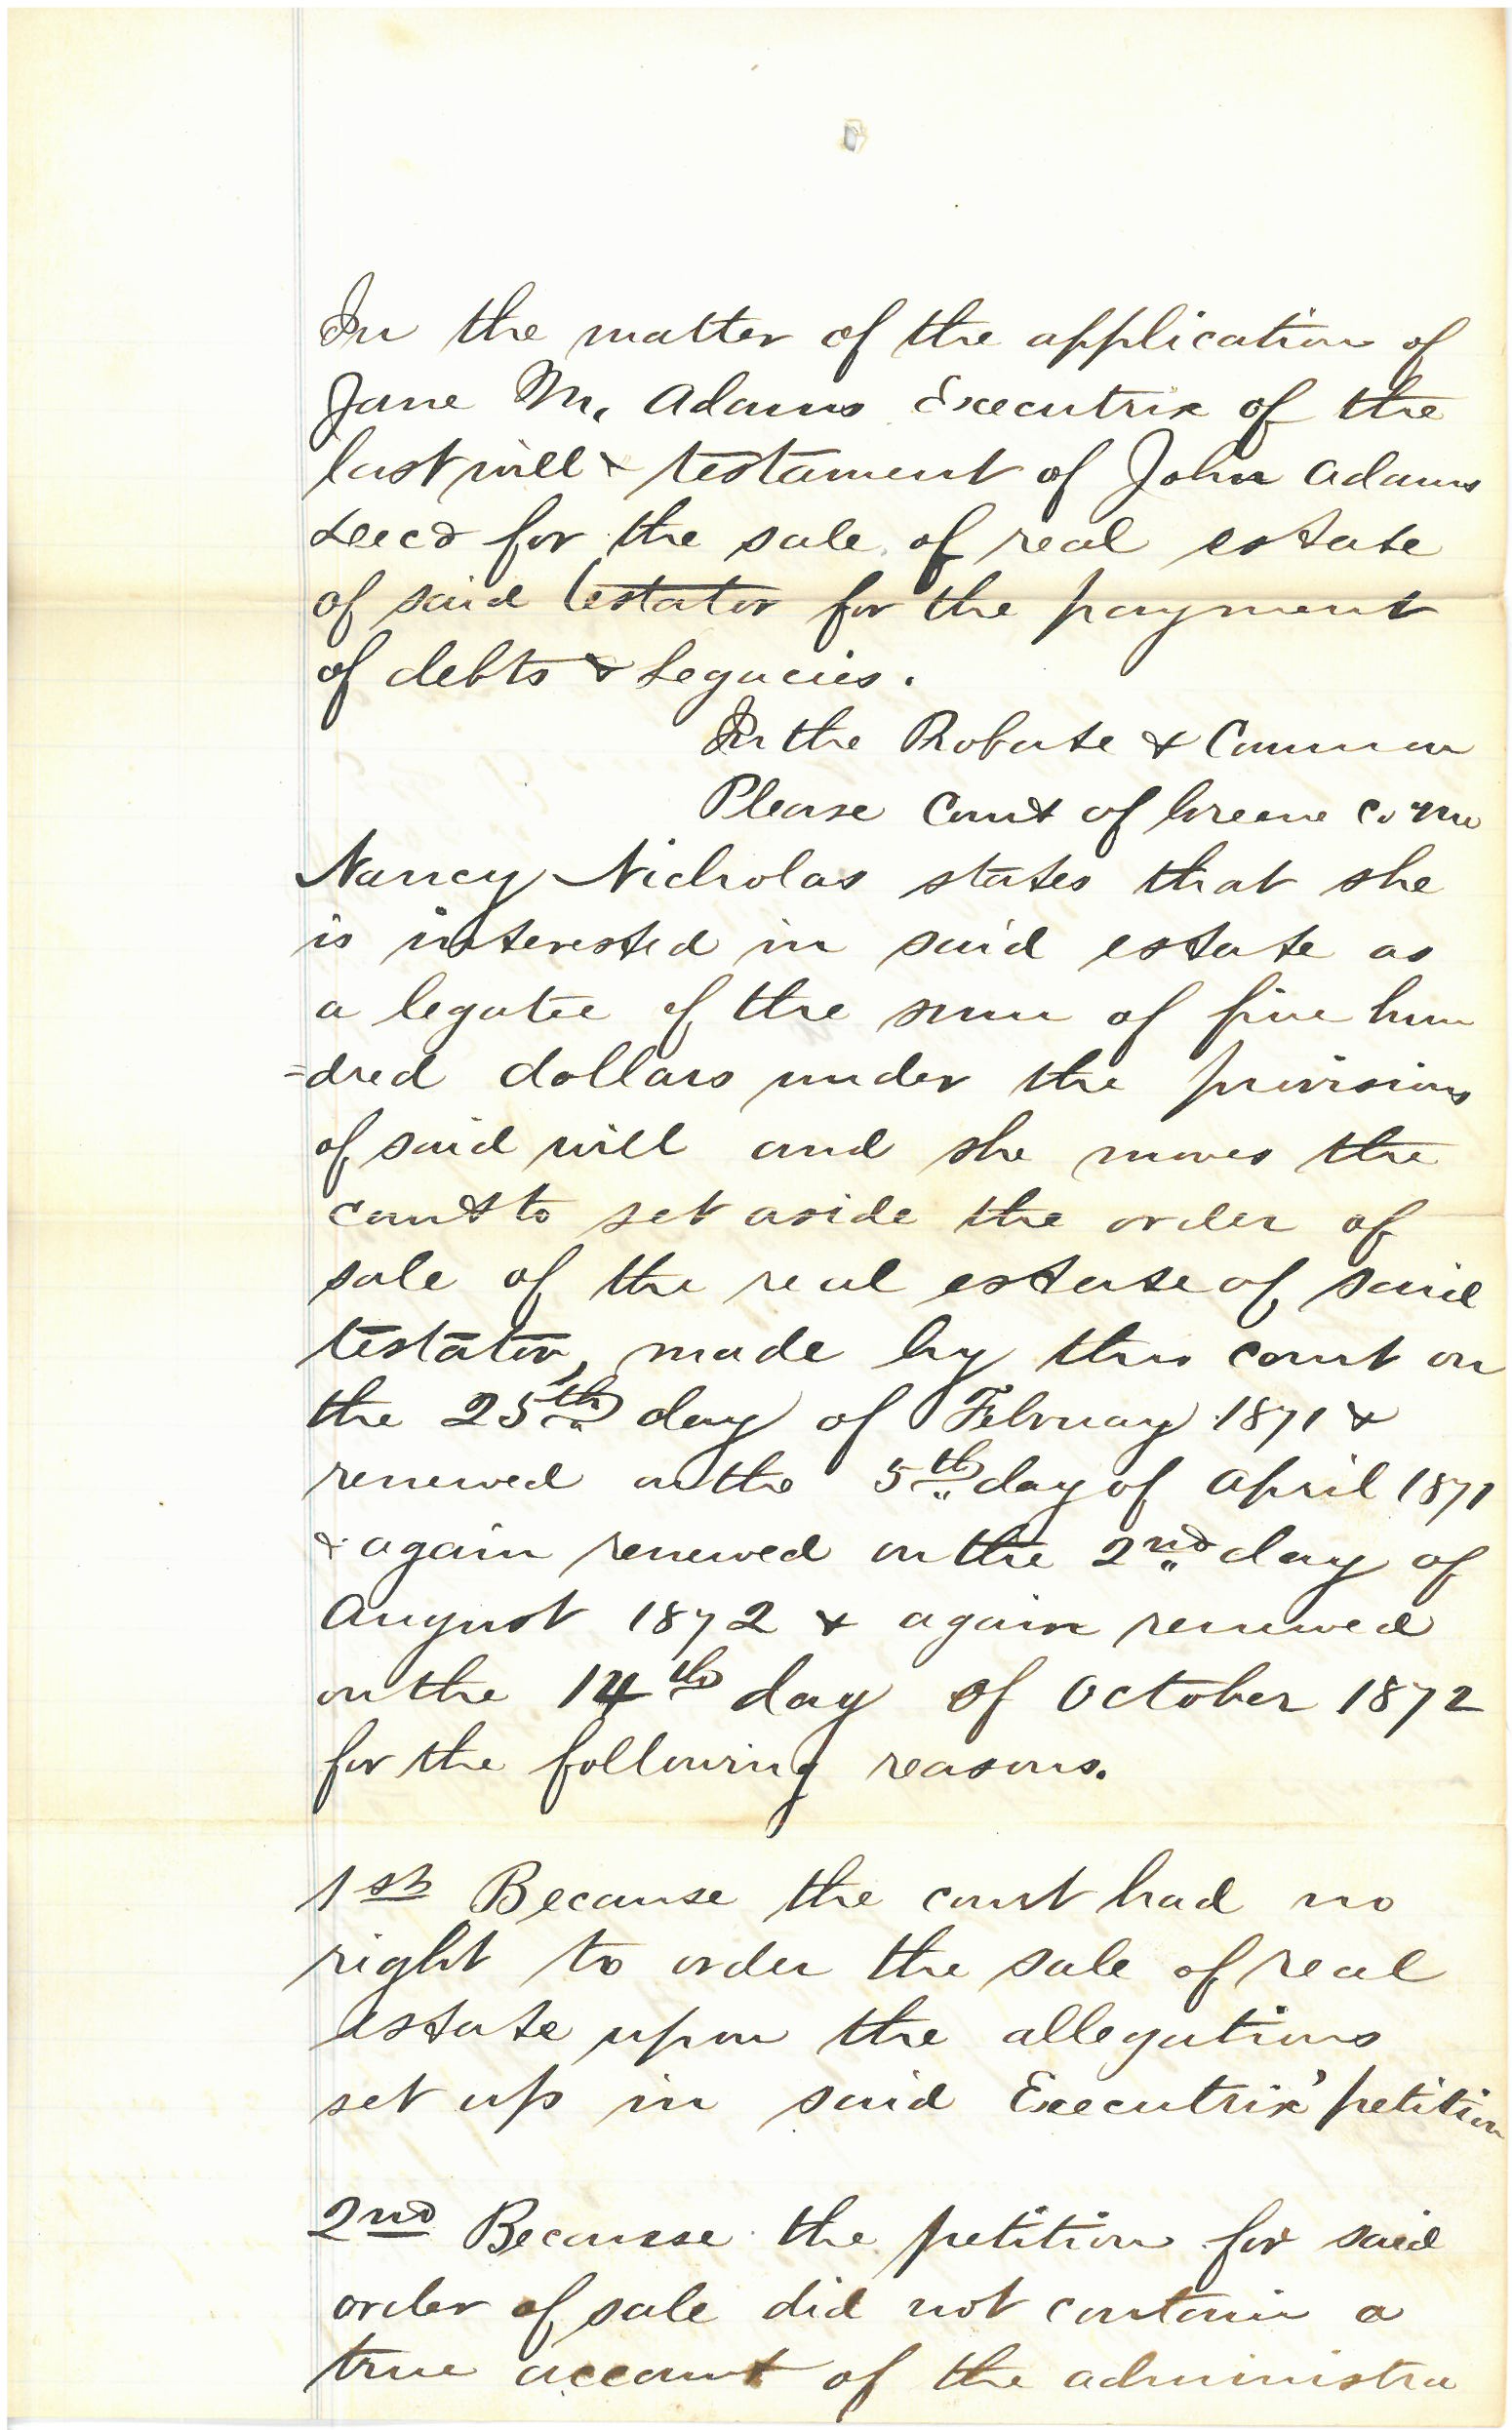 In the matter of the application of
Jane M. Adams Executrix of the
last will & testament of John Adams
decd for the sale of real estate
of said testator for the payment
of debts & Legacies.
In the Probate & Common
Please Court of Greene Co Mo
Nancy Nicholas states that she
is interested in said estate as
a legatee of the sum of five hun
=dred dollars under the provisions
of said will and she moves the
court to set aside the order of
sale of the real estate of said
testator, made by this court on
the 25th day of February 1871 &
renewed on the 5th day of April 1871
& again renewed on the 2nd day of
August 1872 & again renewed
on the 14th day of October 1872
for the following reasons.
1st Because the court had no
right to order the sale of real
estate upon the allegations
set up in said Executrix' petition
2nd Because the petition for said
order of sale did not contain a
true account of the administra